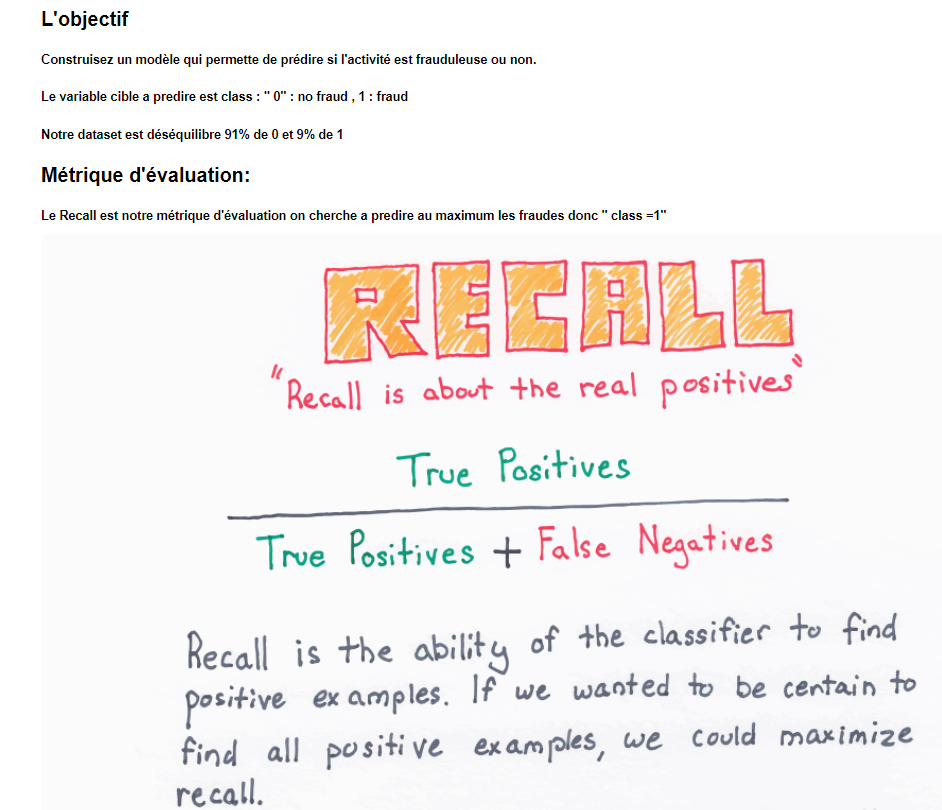 L'objectif
Construisez un modèle qui permette de prédire si l'activité est frauduleuse ou non.
Le variable cible a predire est class : " 0" : no fraud , 1 : fraud
Notre dataset est déséquilibre 91% de 0 et 9% de 1
Métrique d'évaluation:
Le Recall est notre métrique d'évaluation on cherche a predire au maximum les fraudes donc " class =1"
RECALL
"Recall is about the real positives"
True Positives
True Positives + False Negatives
Recall is the ability of the classifier to find
positive examples. If we wanted to be certain to
find all positive examples, we could maximize
recall.